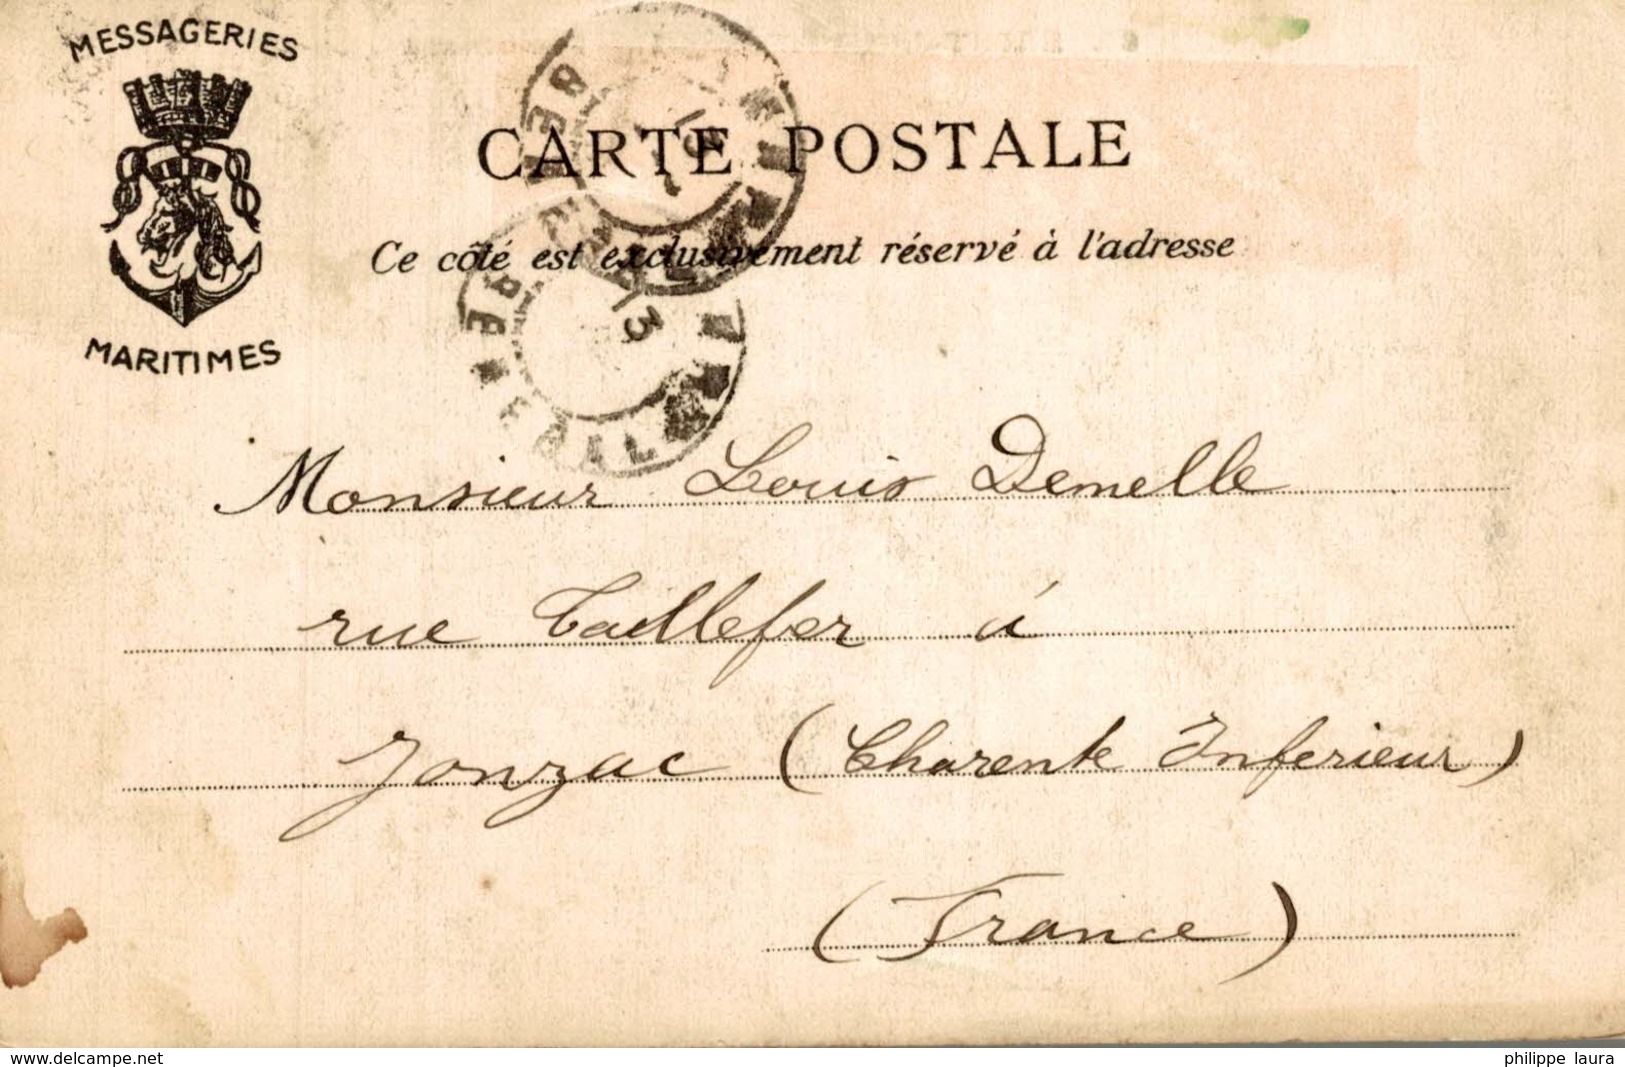 MESSAGERIES
MARITIMES
CARTE POSTALE
Ce côté est exclusivement réservé à l'adresse
13
Monsieur Louis Demelle
rue Taillefer à
Jonzac (Charente Inferieur)
(France)
www.delcampe.net
philippe laura